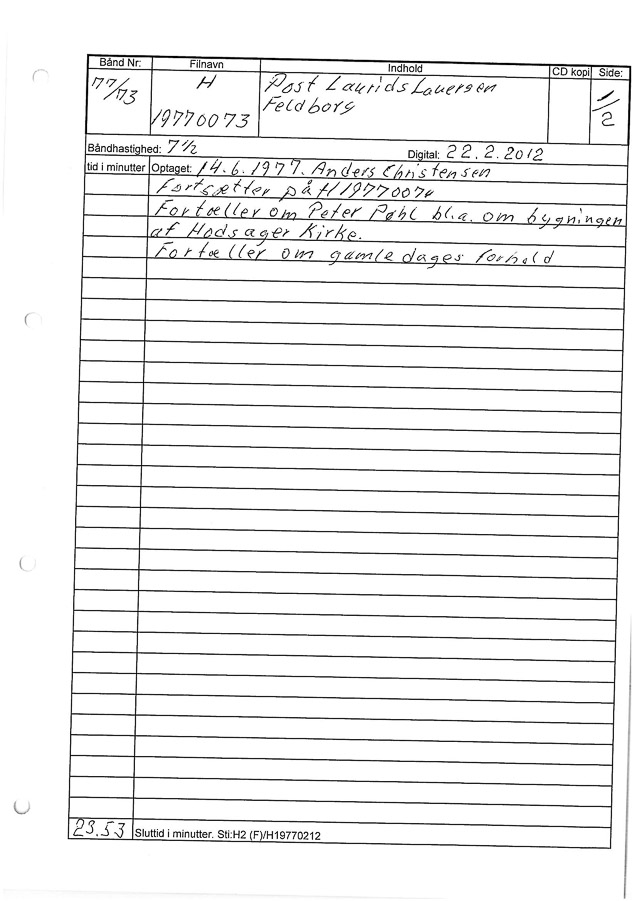 Bånd Nr: Filnavn Indhold CD kopi Side:
77/73 H Post Laurids Lauersen 1/2
19770073 Feldborg
Båndhastighed: 7½ Digital: 22.2.2012
tid i minutter Optaget: 14.6.1977. Anders Christensen
Fortsætter på H19770074
Fortæller om Peter Pøhl bl.a. om bygningen
af Hodsager Kirke.
Fortæller om gamle dages forhold
23.53 Sluttid i minutter. Sti:H2 (F)/H19770212